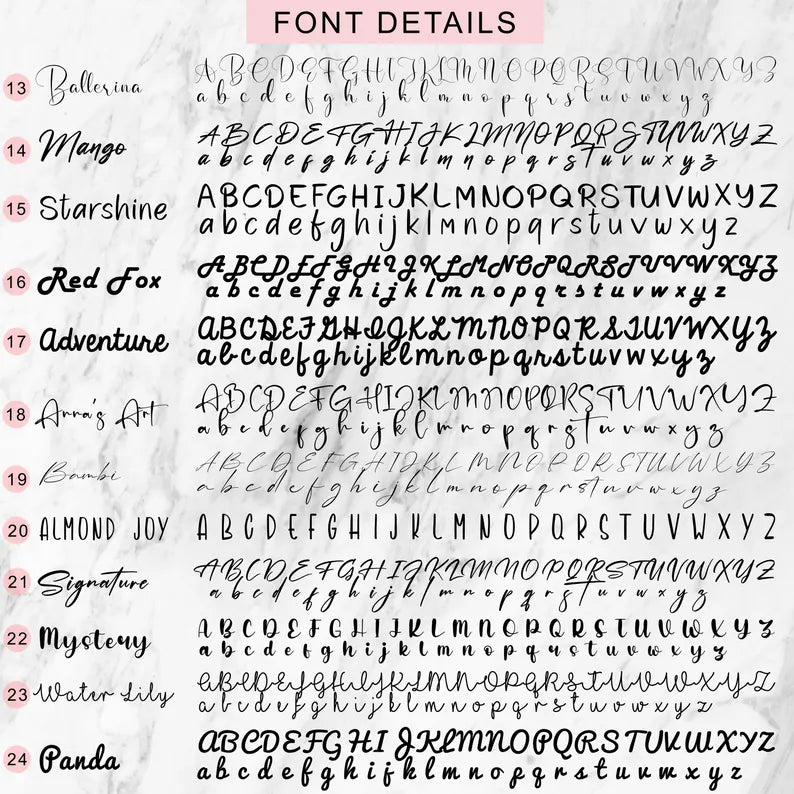 FONT DETAILS
13 Ballerina A B C D E F G H I J K L M N O P Q R S T U V W X Y Z
a b c d e f g h i j k l m n o p q r s t u v w x y z
14 Mango A B C D E F G H I J K L M N O P Q R S T U V W X Y Z
a b c d e f g h i j k l m n o p q r s t u v w x y z
15 Starshine A B C D E F G H I J K L M N O P Q R S T U V W X Y Z
a b c d e f g h i j k l m n o p q r s t u v w x y z
16 Red Fox A B C D E F G H I J K L M N O P Q R S T U V W X Y Z
a b c d e f g h i j k l m n o p q r s t u v w x y z
17 Adventure A B C D E F G H I J K L M N O P Q R S T U V W X Y Z
a b c d e f g h i j k l m n o p q r s t u v w x y z
18 Anna's Art A B C D E F G H I J K L M N O P Q R S T U V W X Y Z
a b c d e f g h i j k l m n o p q r s t u v w x y z
19 Bambi A B C D E F G H I J K L M N O P Q R S T U V W X Y Z
a b c d e f g h i j k l m n o p q r s t u v w x y z
20 ALMOND JOY A B C D E F G H I J K L M N O P Q R S T U V W X Y Z
21 Signature A B C D E F G H I J K L M N O P Q R S T U V W X Y Z
a b c d e f g h i j k l m n o p q r s t u v w x y z
22 Mystery A B C D E F G H I J K L M N O P Q R S T U V W X Y Z
a b c d e f g h i j k l m n o p q r s t u v w x y z
23 Water Lily A B C D E F G H I J K L M N O P Q R S T U V W X Y Z
a b c d e f g h i j k l m n o p q r s t u v w x y z
24 Panda A B C D E F G H I J K L M N O P Q R S T U V W X Y Z
a b c d e f g h i j k l m n o p q r s t u v w x y z